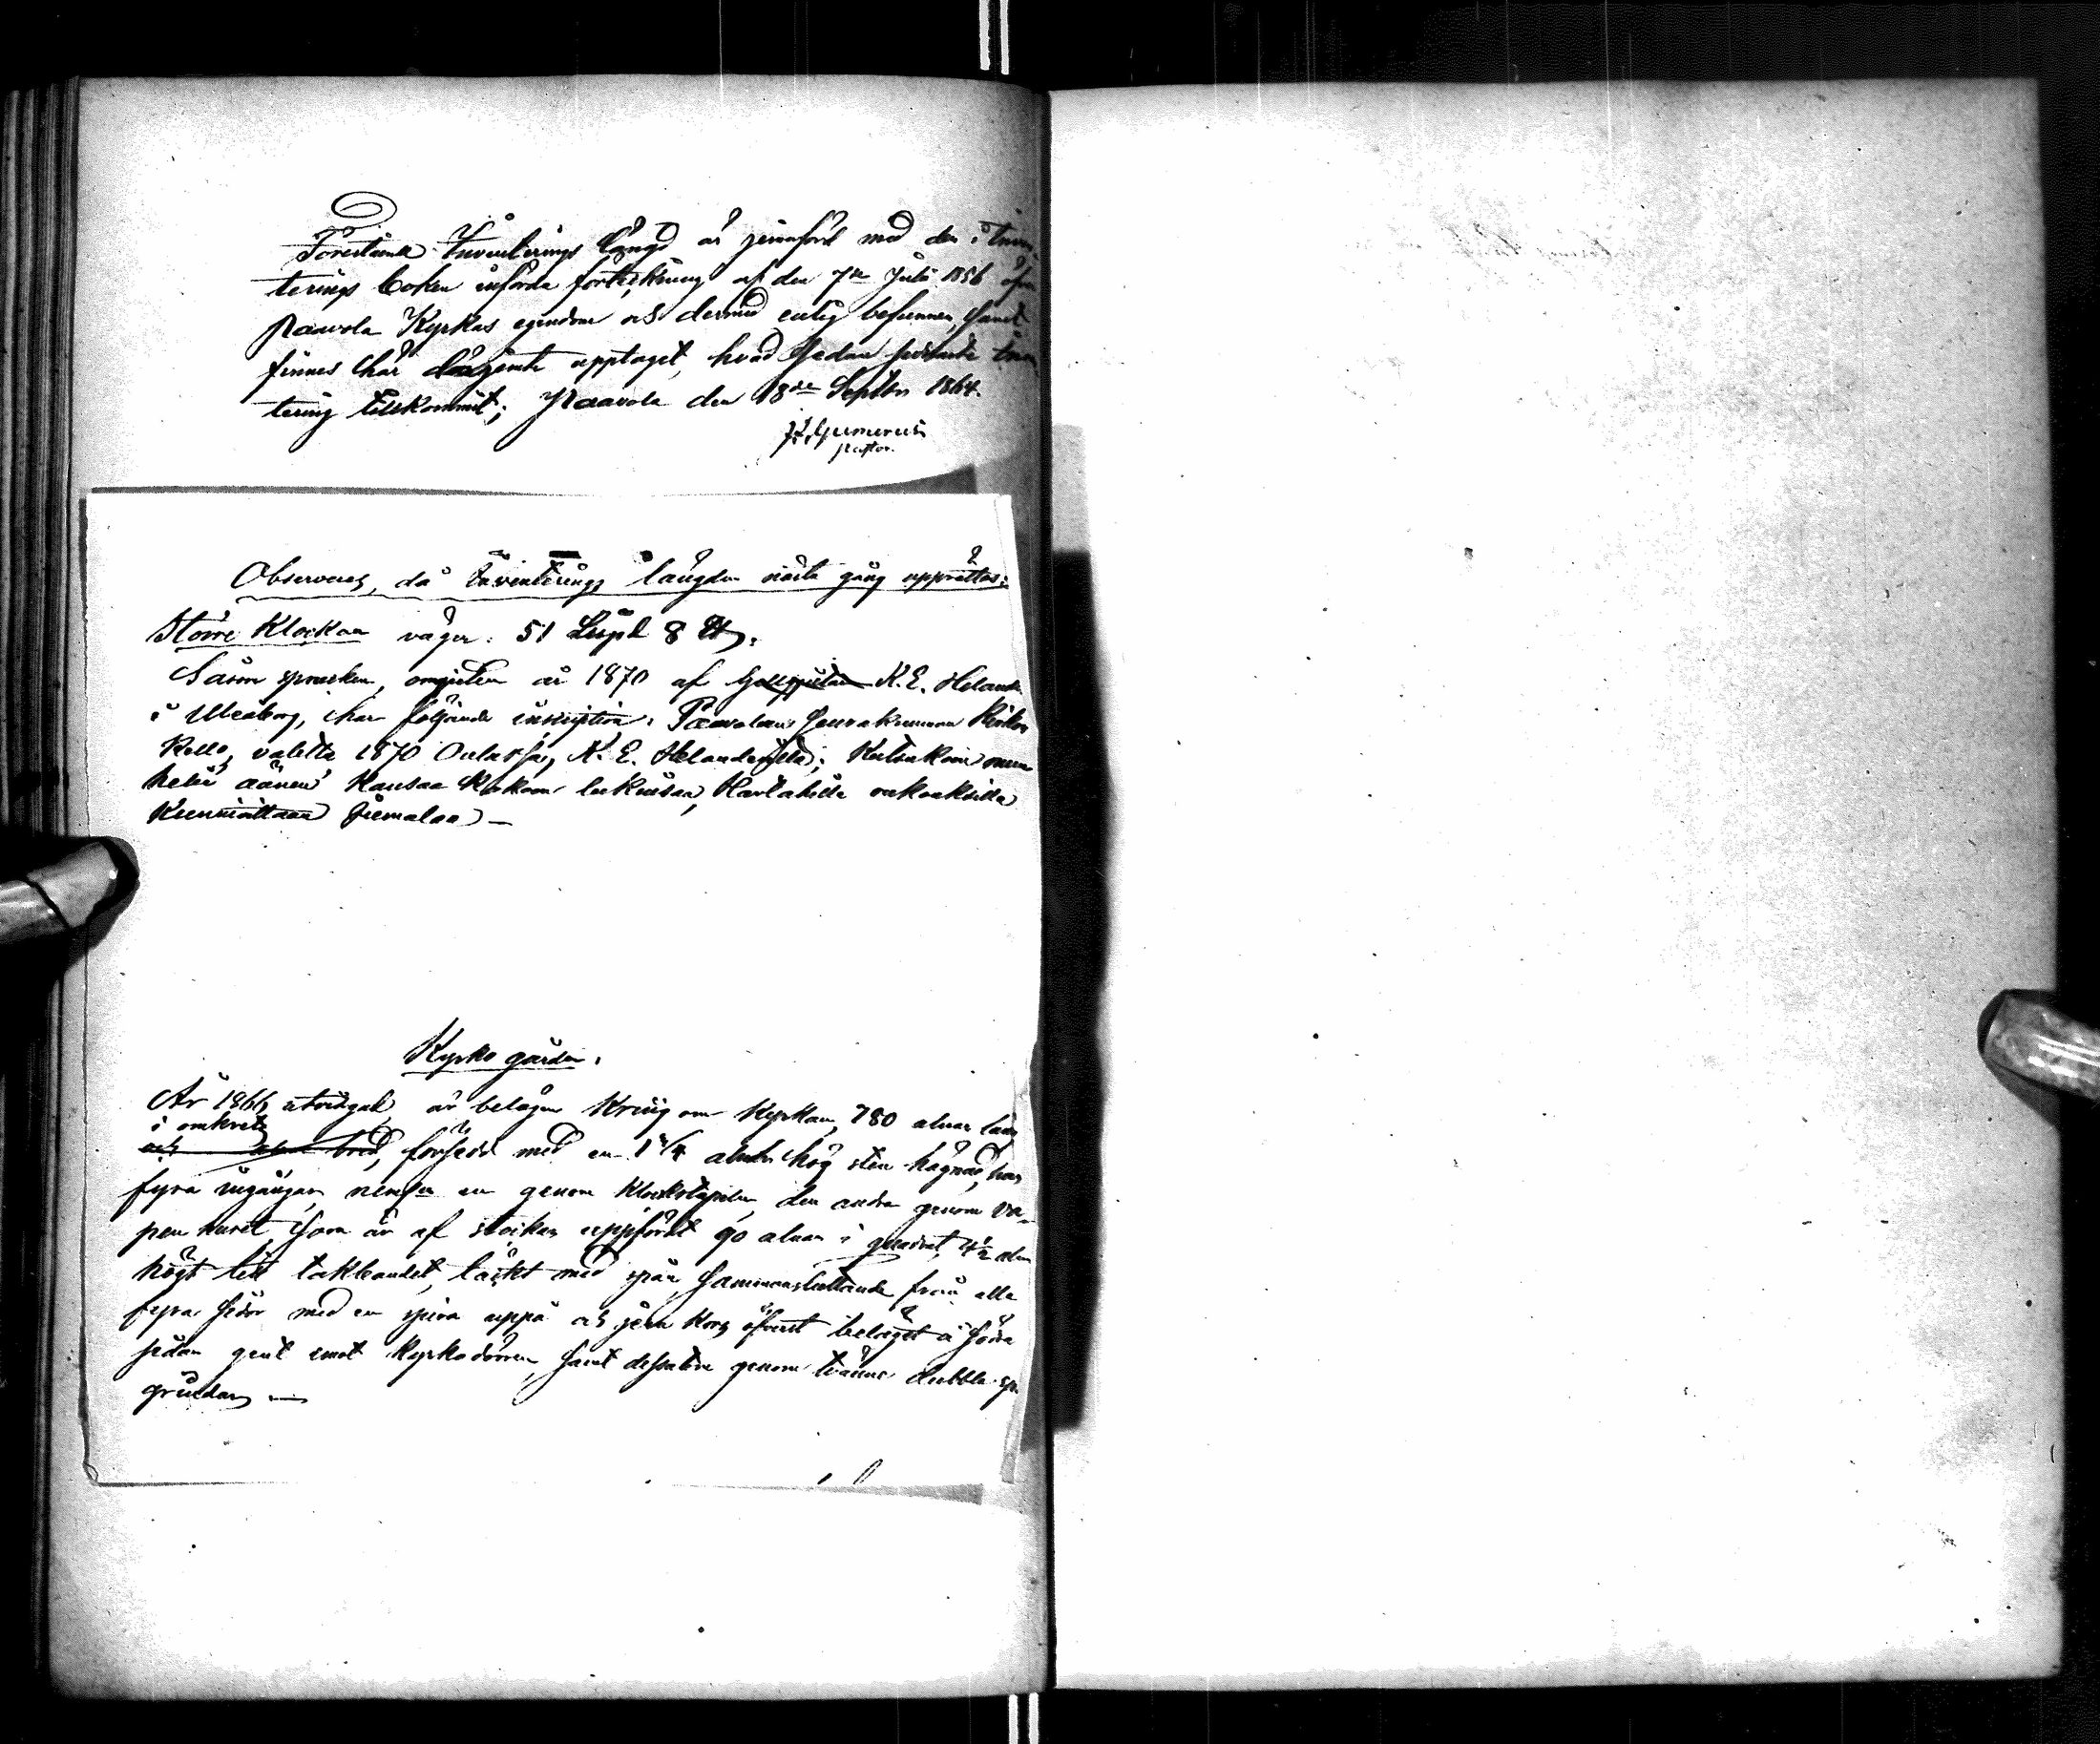 Förestående Inventerings längd är jemnförd med den i Inven-
terings boken införda förteckning af den 7de Julii 1856 öfver
Paavola Kyrkas egendom och dermed enlig befunnen, samt
finnes här längente upptaget, hvad sedan sednaste Inven
tering tillkommit; Paavola den 18de Septbr 1864.
Gummerus
pastor.
Observeras, då Inventerings längden nästa gång upprättas:
Större Klockan väger: 51 Lispd 8 ℔.
Såsom sprucken, omgjuten år 1870 af K. E. Helander
i Uleåborg, har följande inscription: Paavolan Seurakunnan Kirkon
Kello, valettu 1870 Oulussa, K. E. Helanderilta; Kutsukoon mun
heliä ääneni Kansaa Kokoon lukuisaa, Hartahilla rukouksilla
Kunnioittaan Jumalaa —
Kyrko gården.
År 1866 utvidgad, är belägen Kring om Kyrkan, 780 alnar lång
i omkrets
och alnar bred, försedd med en 1 3/4 alnar hög sten hägnad, har
fyra ingångar, nemln en genom Klockstapeln, den andra genom va-
pen huset, som är af stockar uppfördt 90 alnar i quadrat, 4½ aln
högt till takbandet, täckt med spån, sammanslutande från alla
fyra sidor med en spira uppå och jern Kors öfverst beläget å södra
sidan gent emot Kyrko dörren, samt dessutom genom tvänne dubbla sp
grindar —